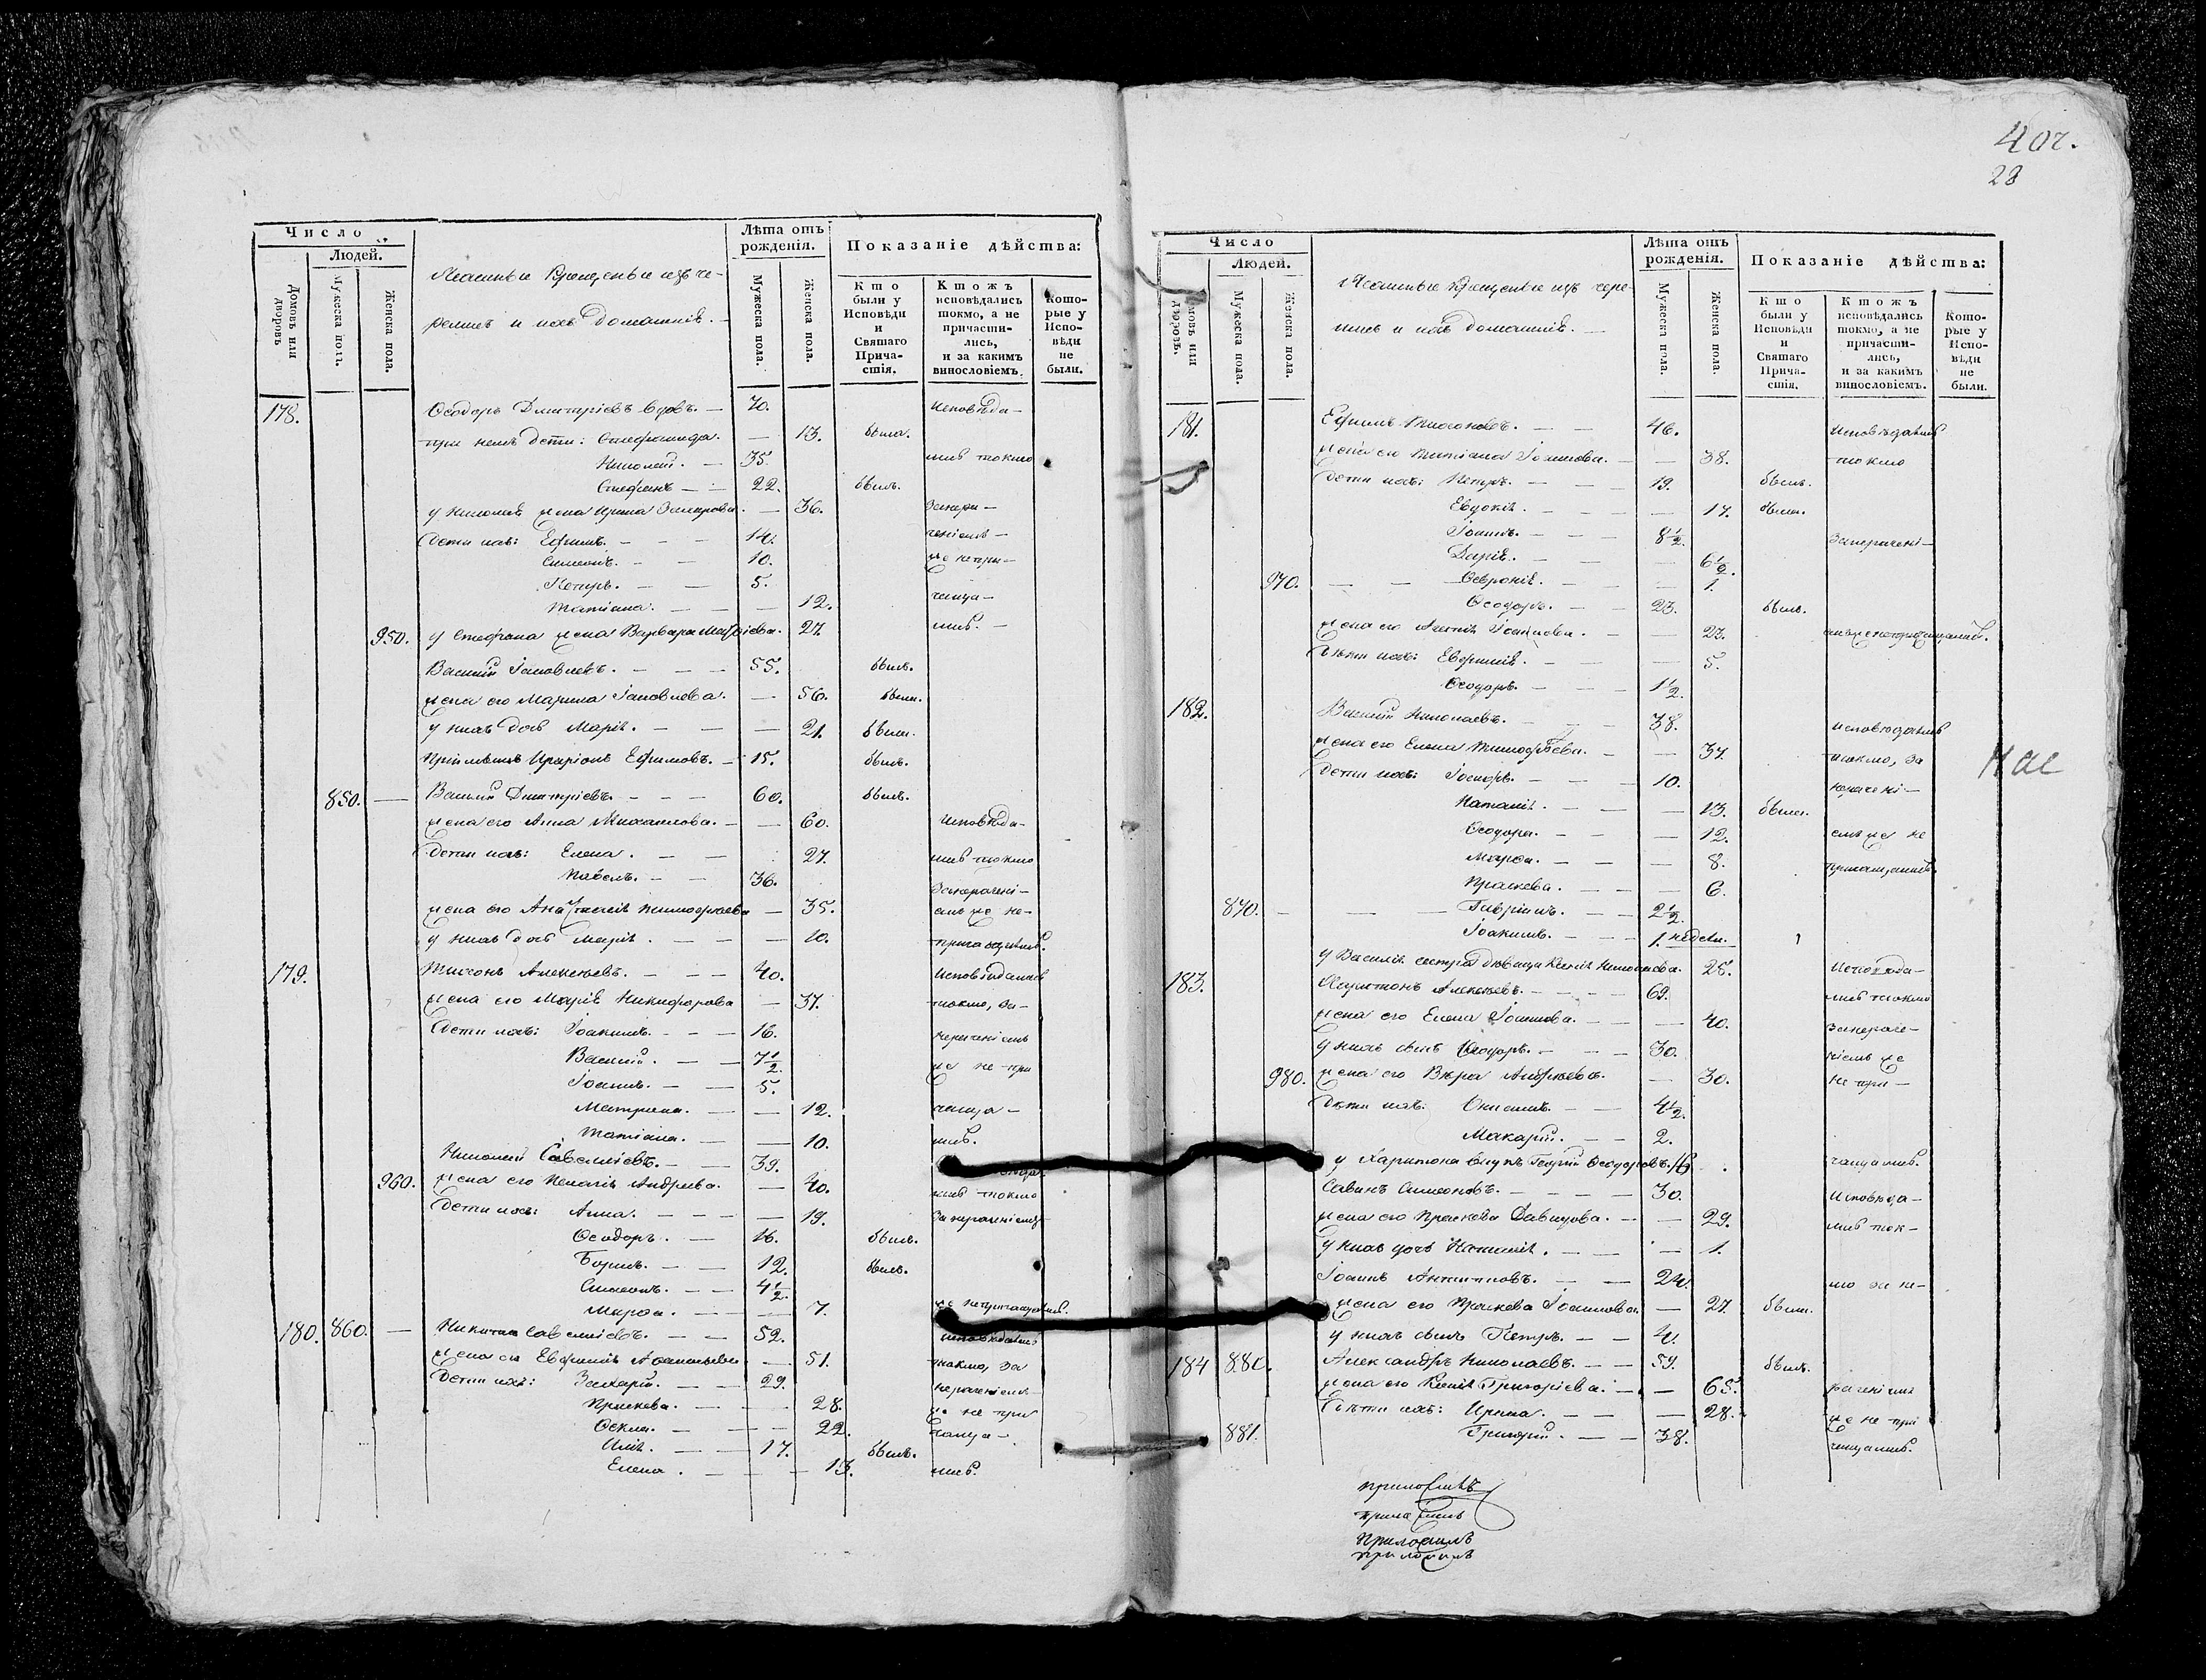 40г.
28
Число
Людей.
Домовъ или дворовъ
Мужеска пола.
Женска пола.
Ясашные крещеные изъ че-
ремисъ и ихъ домашніе. –
Лѣта отъ рожденія.
Мужеска пола.
Женска пола.
Показаніе дѣйства:
Кто были у Исповѣди и Святаго Прича- стія.
Ктожъ исповѣдались токмо, а не причасти- лись, и за какимъ винословіемъ.
Кото- рые у Испо- вѣди не были.
178. Ѳеодоръ Дмитріевъ вдовъ. – 70. Исповѣда-
при немъ дети: Стефанида. – 13. была.
Николай. – 35. лись токмо
Стефанъ – 22. былъ.
у Николая жена Ирина Захарова. – 36. занера-
дети ихъ: Ефимъ. – – – 14. ченіемъ –
Симеонъ. – – 10. же непри-
Петръ. – – 5.
Татіана. – – – 12. чаща-
950. у Стефана жена Варвара Матѳіева. 27. лись. –
Василій Іаковлевъ. – – – 55. былъ.
жена его Марина Іаковлева. – 56. была.
у нихъ дочь Марія. – – – 21. была.
пріимышъ Иларіонъ Ефимовъ. – 15. былъ.
850. – Василій Дмитріевъ. – – – 60. былъ.
жена его Анна Михаилова. – – 60. исповѣда-
дети ихъ: Елена. – – 27. лись токмо
Павелъ. – – 36. занерачені-
жена его Анастасія Тимоѳеева – 35. емъ же не-
у нихъ дочь Марія. – – – 10. причащались.
179. Тихонъ Алексѣевъ. – – – 40. Исповѣдались
жена его Марія Никифорова – 37. токмо, за-
дети ихъ: Іоакимъ. – – – 16. нераченіемъ
Василій. – – 7½. же не при
Іоаннъ. – – 5.
Матрона. – – 12. чаща-
Татіана. – – 10. лись.
Николай Савеліевъ. – – 39.
960. жена его Пелагія Андреева. – 40. лись токмо
дети ихъ: Анна. – – – – 19. занераченіемъ
Ѳеодоръ. – – 16. былъ.
Борисъ. – – 12. былъ.
Симеонъ. – – 4½.
Марѳа. – – – 7. же непричащались.
180. 860. – Никита Савеліевъ. – – 52. исповѣдались
жена его Евфимія Аѳанасьева – 51. токмо, за
дети ихъ: Захарій. – – 29. нераченіемъ
Прасковья. – – – 28. же не при
Ѳекла. – – – 22. чаща-
Илія. – – – 17. былъ.
Елена. – – – – 13. лись.
Число
Людей.
Домовъ или дворовъ.
Мужеска пола.
Женска пола.
Ясашные крещеные изъ чере-
мисъ и ихъ домашніе. –
Лѣта отъ рожденія.
Мужеска пола.
Женска пола.
Показаніе дѣйства:
Кто были у Исповѣди и Святаго Прича- стія.
Ктожъ исповѣдались токмо, а не причасти- лись, и за какимъ винословіемъ.
Кото- рые у Испо- вѣди не были.
181. Ефимъ Тихоновъ. – – 46. Исповѣдались
жена его Татіана Іоаннова. – – 38. токмо
дети ихъ: Петръ. – – – 19. былъ.
Евдокія. – – – – 17. была.
Іоаннъ. – – – 8½. занерачені-
Дарія. – – – 6½.
970. – – – Ѳевронія. – – – 1.
Ѳеодоръ. – – 23. былъ.
жена его Агапія Іоаннова. – – 23. емъ же непричащались.
дѣти ихъ: Евфимія. – – – 5.
Ѳеодоръ. – – – 1½.
182. Василій Николаевъ. – – – 38. исповѣдались
жена его Елена Тимоѳеева. – – 37. токмо, за
дети ихъ: Іосифъ. – – – 10. нерачені-
Наталія. – – – – 13. была.
Ѳеодора. – – – 12. емъ же не
Марѳа. – – – 8. причащались.
Праскева. – – – 6.
870. – – – Гавріилъ. – – 2½.
Іоакимъ. – – – 1. недели.
у Василія сестра девица Ксенія Николаева. 25. Исповѣда-
183. Харитонъ Алексѣевъ. – – – 69. лись токмо
жена его Елена Іоаннова. – – – 40. занераче-
у нихъ сынъ Ѳеодоръ. – – – 30. ніемъ же
980. жена его Вѣра Андрѣева. – 30. не при-
дѣти ихъ: Онисимъ. – – 4½.
Макарій. – – 2.
у Харитона внукъ Георгій Ѳеодоровъ. 16. чащались.
Савинъ Симеоновъ. – – – – 30. Исповѣда-
жена его Праскева Давидова. – – 29. лись ток-
у нихъ дочь Наталія. – – – 1.
Іоаннъ Антиповъ. – – 24. мо за не-
жена его Праскева Іоаннова. – 27. была.
у нихъ сынъ Петръ. – – 4.
184 880. Александръ Николаевъ. – – 59. былъ.
жена его Ксенія Григоріева. – – 65. раченіемъ
дѣти ихъ: Ирина. – – – 28. же не при
881. Григорій. – – 38. чащались.
Нас